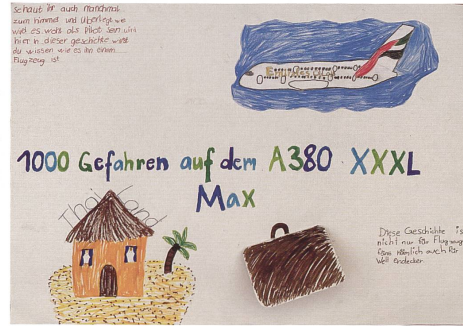 schaut ihr auch manchmal
zum himmel und überlegt we
wird es wohl als Pilot sein
hier in dieser geschichte wirst
du wissen wie es ihn einem
Flugzeug ist
Emirates
1000 Gefahren auf dem A380 XXXL
Max
Thailand
Diese Geschichte is
nicht nur für Flugzeug
fäns nämlich auch für
Welt endecker